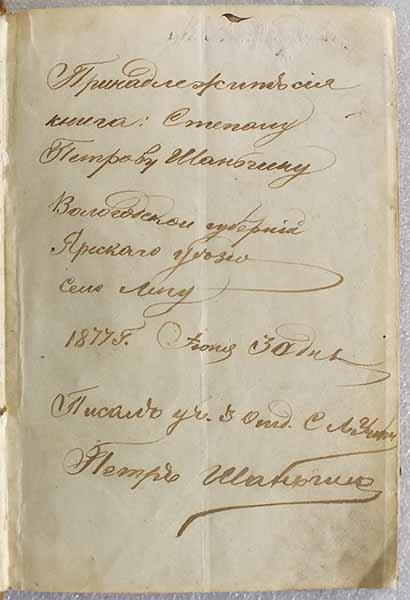 Принадлежитъ сия
книга: Степану
Петрову Шаньгину
Вологодской губерній
Яренскаго уѣзда
село Лену
1877 г. Іюня 30 дня
Писалъ уч. 3 отд. С
Петръ Шаньгинъ